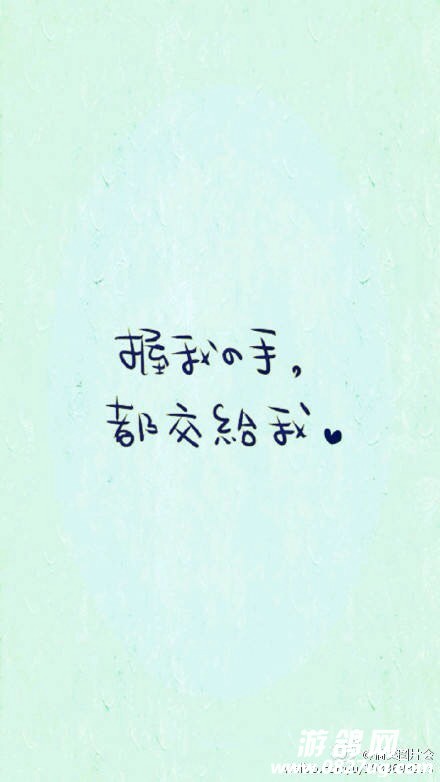 握我の手,
都交給我♥
游鸽网